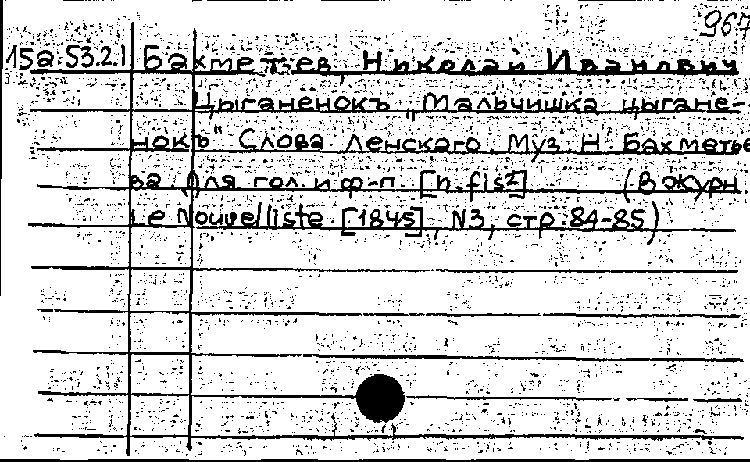 967
15а.53.2.1 Бахметьев, Николай Иванович
Цыганенокъ „Мальчишка цыгане-
нокъ" Слова Ленского Муз. Н. Бахметье
ва Для гол. и ф-п. [h-fis²] (В журн
Le Nouvelliste. [1845], N3, стр. 84-85)